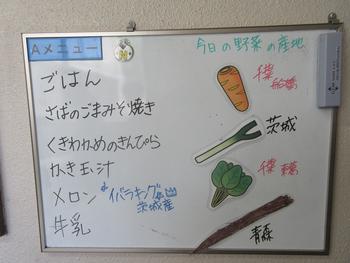 Aメニュー
今日の野菜の産地
ごはん
さばのごまみそ焼き
くきわかめのきんぴら
かき玉汁
メロン
イバラキング
茨城産
牛乳
千葉
船橋
茨城
千葉
青森